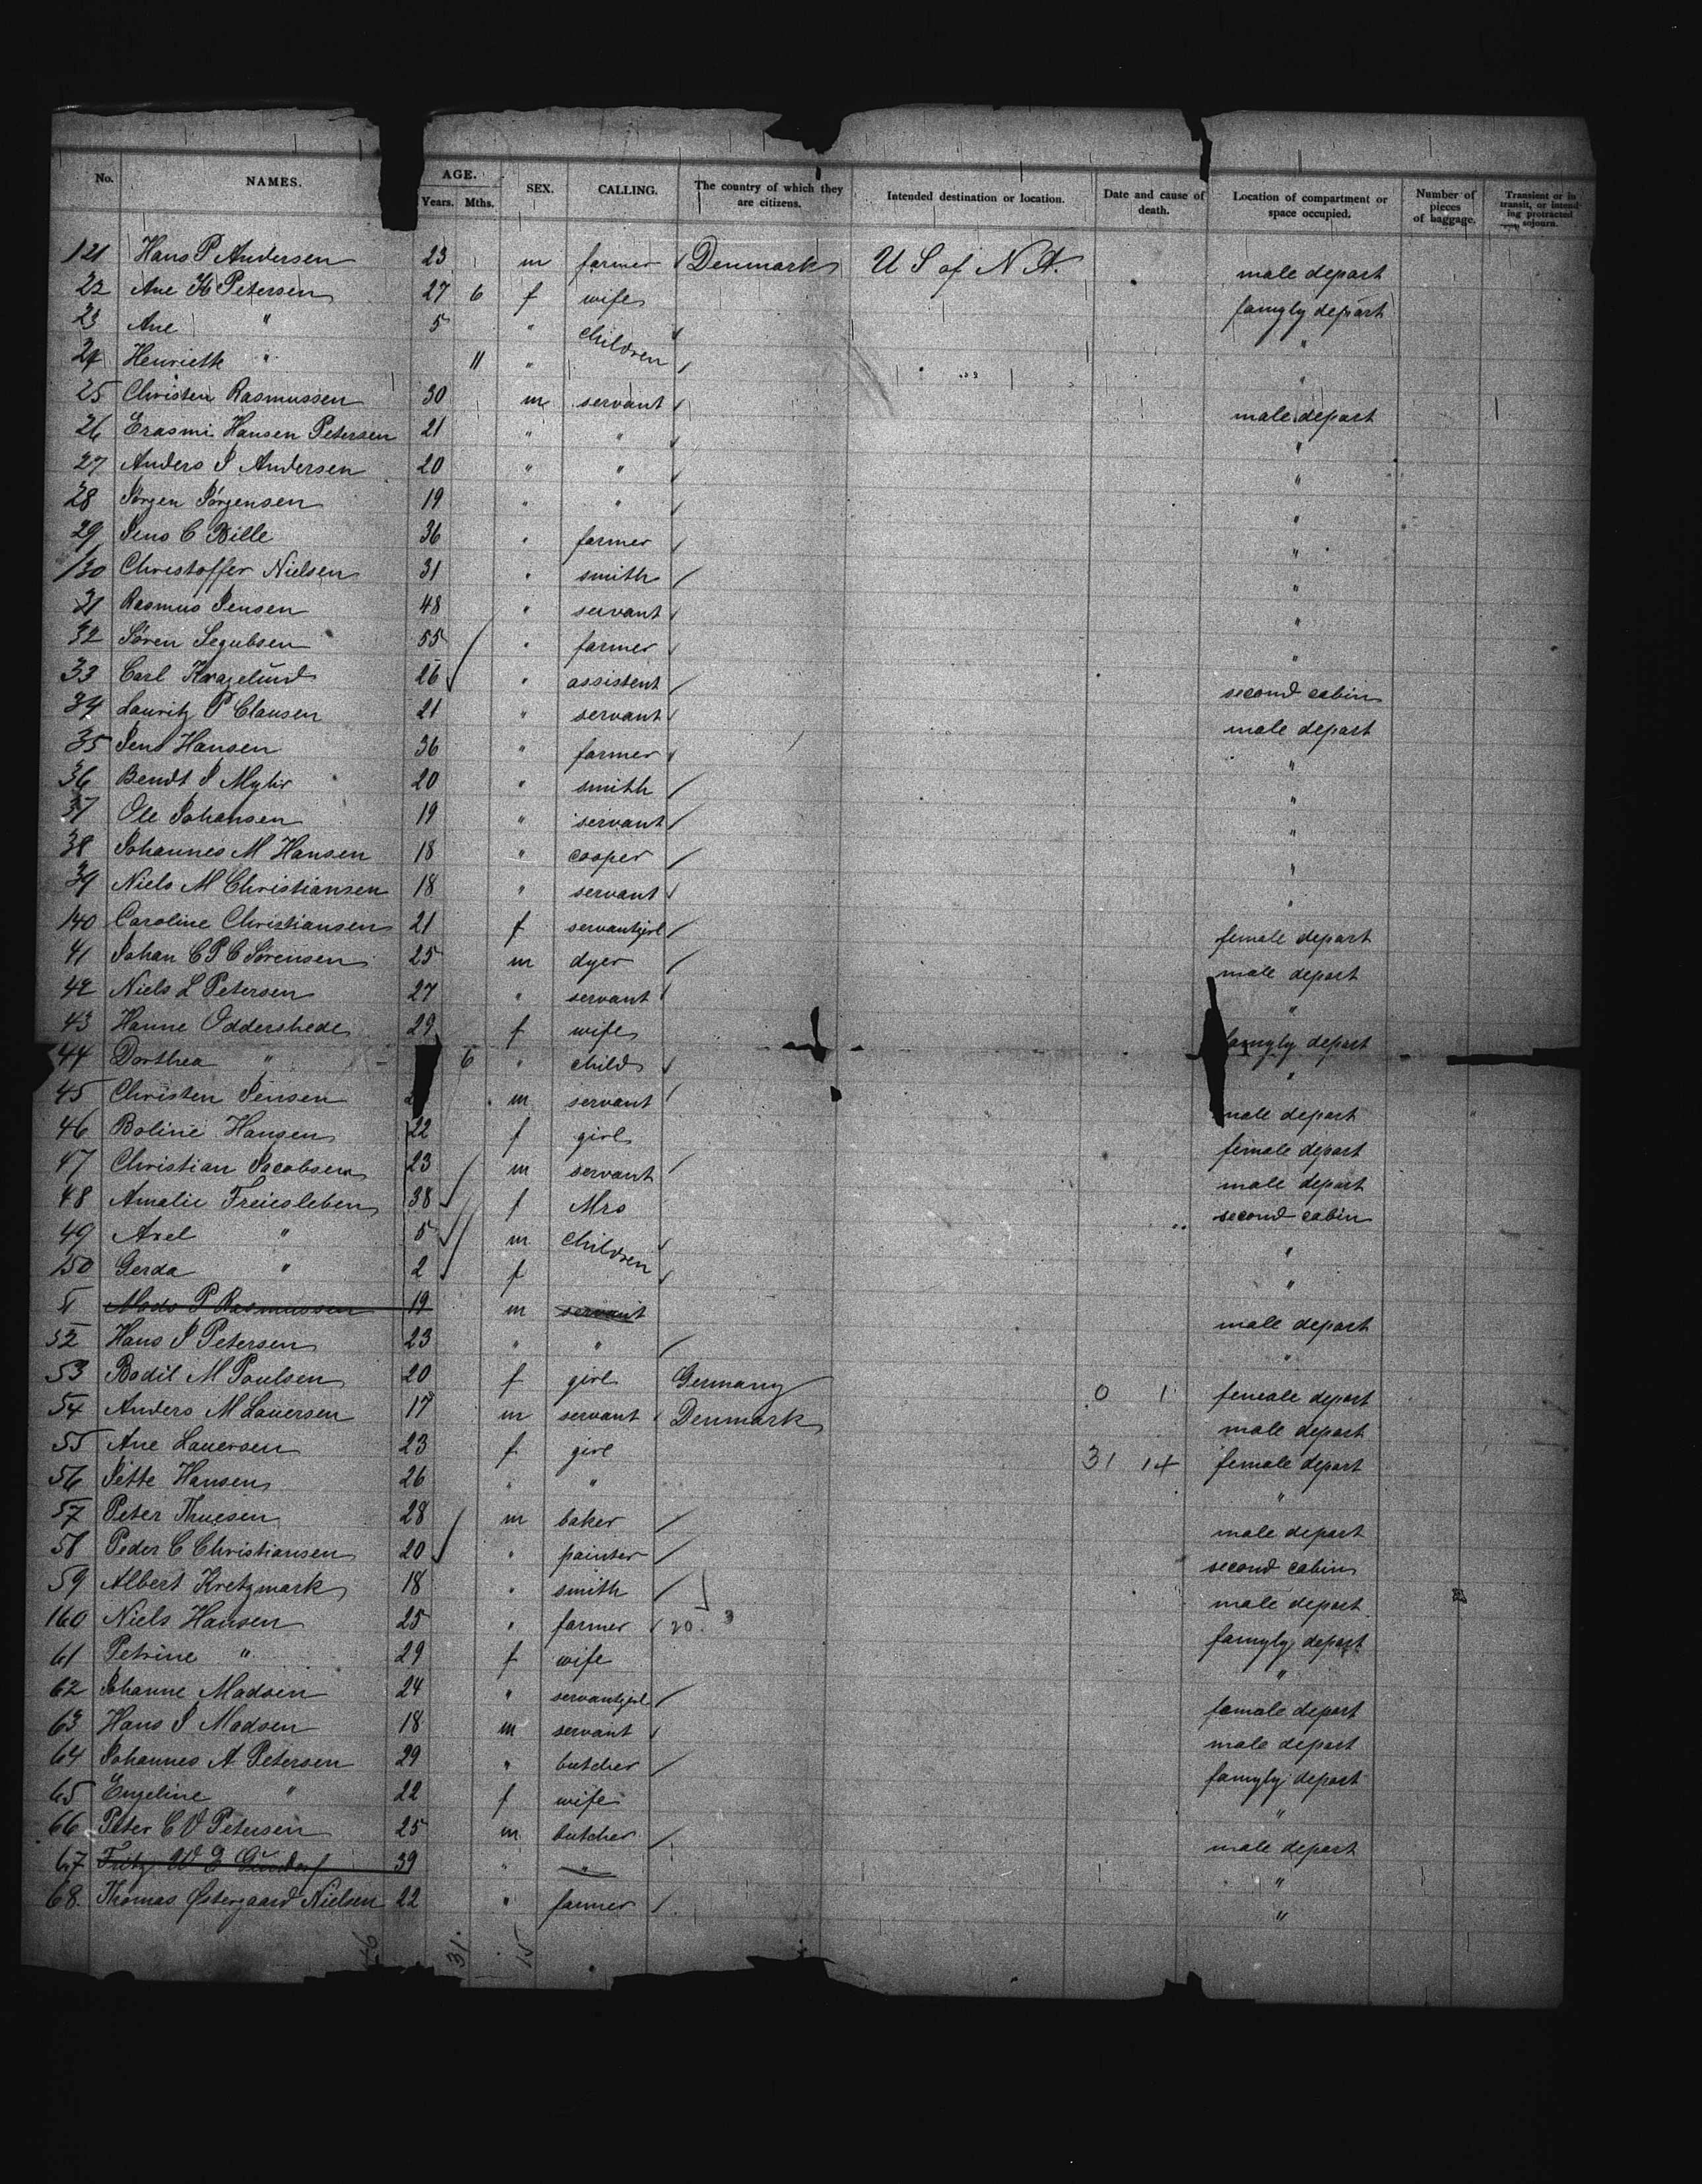 No. NAMES. AGE. Years. Mths. SEX. CALLING. The country of which they are citizens. Intended destination or location. Date and cause of death. Location of compartment or space occupied. Number of pieces of baggage. Transient or in transit, or intending protracted sojourn.
121 Hans P Andersen 23 m farmer Denmark U S of N A. male depart
22 Ane K Petersen 27 6 f wife famyly depart
23 Ane " 5 " children "
24 Henriette " 11 " "
25 Christen Rasmussen 30 m servant male depart
26 Erasmi Hansen Petersen 21 " " "
27 Anders J Andersen 20 " " "
28 Jörgen Jörgensen 19 " " "
29 Jens C Bille 36 " farmer "
130 Christoffer Nielsen 31 " smith "
31 Rasmus Jensen 48 " servant "
32 Sören 55 " farmer "
33 Carl Kragelund 26 " assistent second cabin
34 Lauritz P Clausen 21 " servant male depart
35 Jens Hansen 36 " farmer "
36 Bendt J 20 " smith "
37 Ole Johansen 19 " servant "
38 Johannes M Hansen 18 " cooper "
39 Niels M Christiansen 18 " servant "
140 Caroline Christiansen 21 f servantgirl female depart
41 Johan C P C Sörensen 25 m dyer male depart
42 Niels L Petersen 27 " servant "
43 Hanne Oddershede 29 f wife famyly depart
44 Dorthea " 6 " child "
45 Christen Jensen m servant male depart
46 Boline Hansen 22 f girl female depart
47 Christian Jacobsen 23 m servant male depart
48 Amalie Freiesleben 38 f Mrs second cabin
49 Axel " 5 m children "
150 Gerda " 2 f "
51 Mads P Rasmussen 19 m servant male depart
52 Hans J Petersen 23 " " "
53 Bodil M Poulsen 20 f girl Germany 0 1 female depart
54 Anders M Lauersen 17 m servant Denmark male depart
55 Ane Lauersen 23 f girl 31 14 female depart
56 Jette Hansen 26 " " "
57 Peter Thuesen 28 m baker male depart
58 Peder C Christiansen 20 " painter second cabin
59 Albert Kretzmark 18 " smith male depart
160 Niels Hansen 25 " farmer 20 3 famyly depart
61 Petrine " 29 f wife "
62 Johanne Madsen 24 " servantgirl female depart
63 Hans J Madsen 18 m servant male depart
64 Johannes A Petersen 29 " butcher famyly depart
65 Engeline " 22 f wife "
66 Peter C V Petersen 25 m butcher male depart
67 Fritz W 39 " " "
68 Thomas Østergaard Nielsen 22 " farmer "
46 31. 15